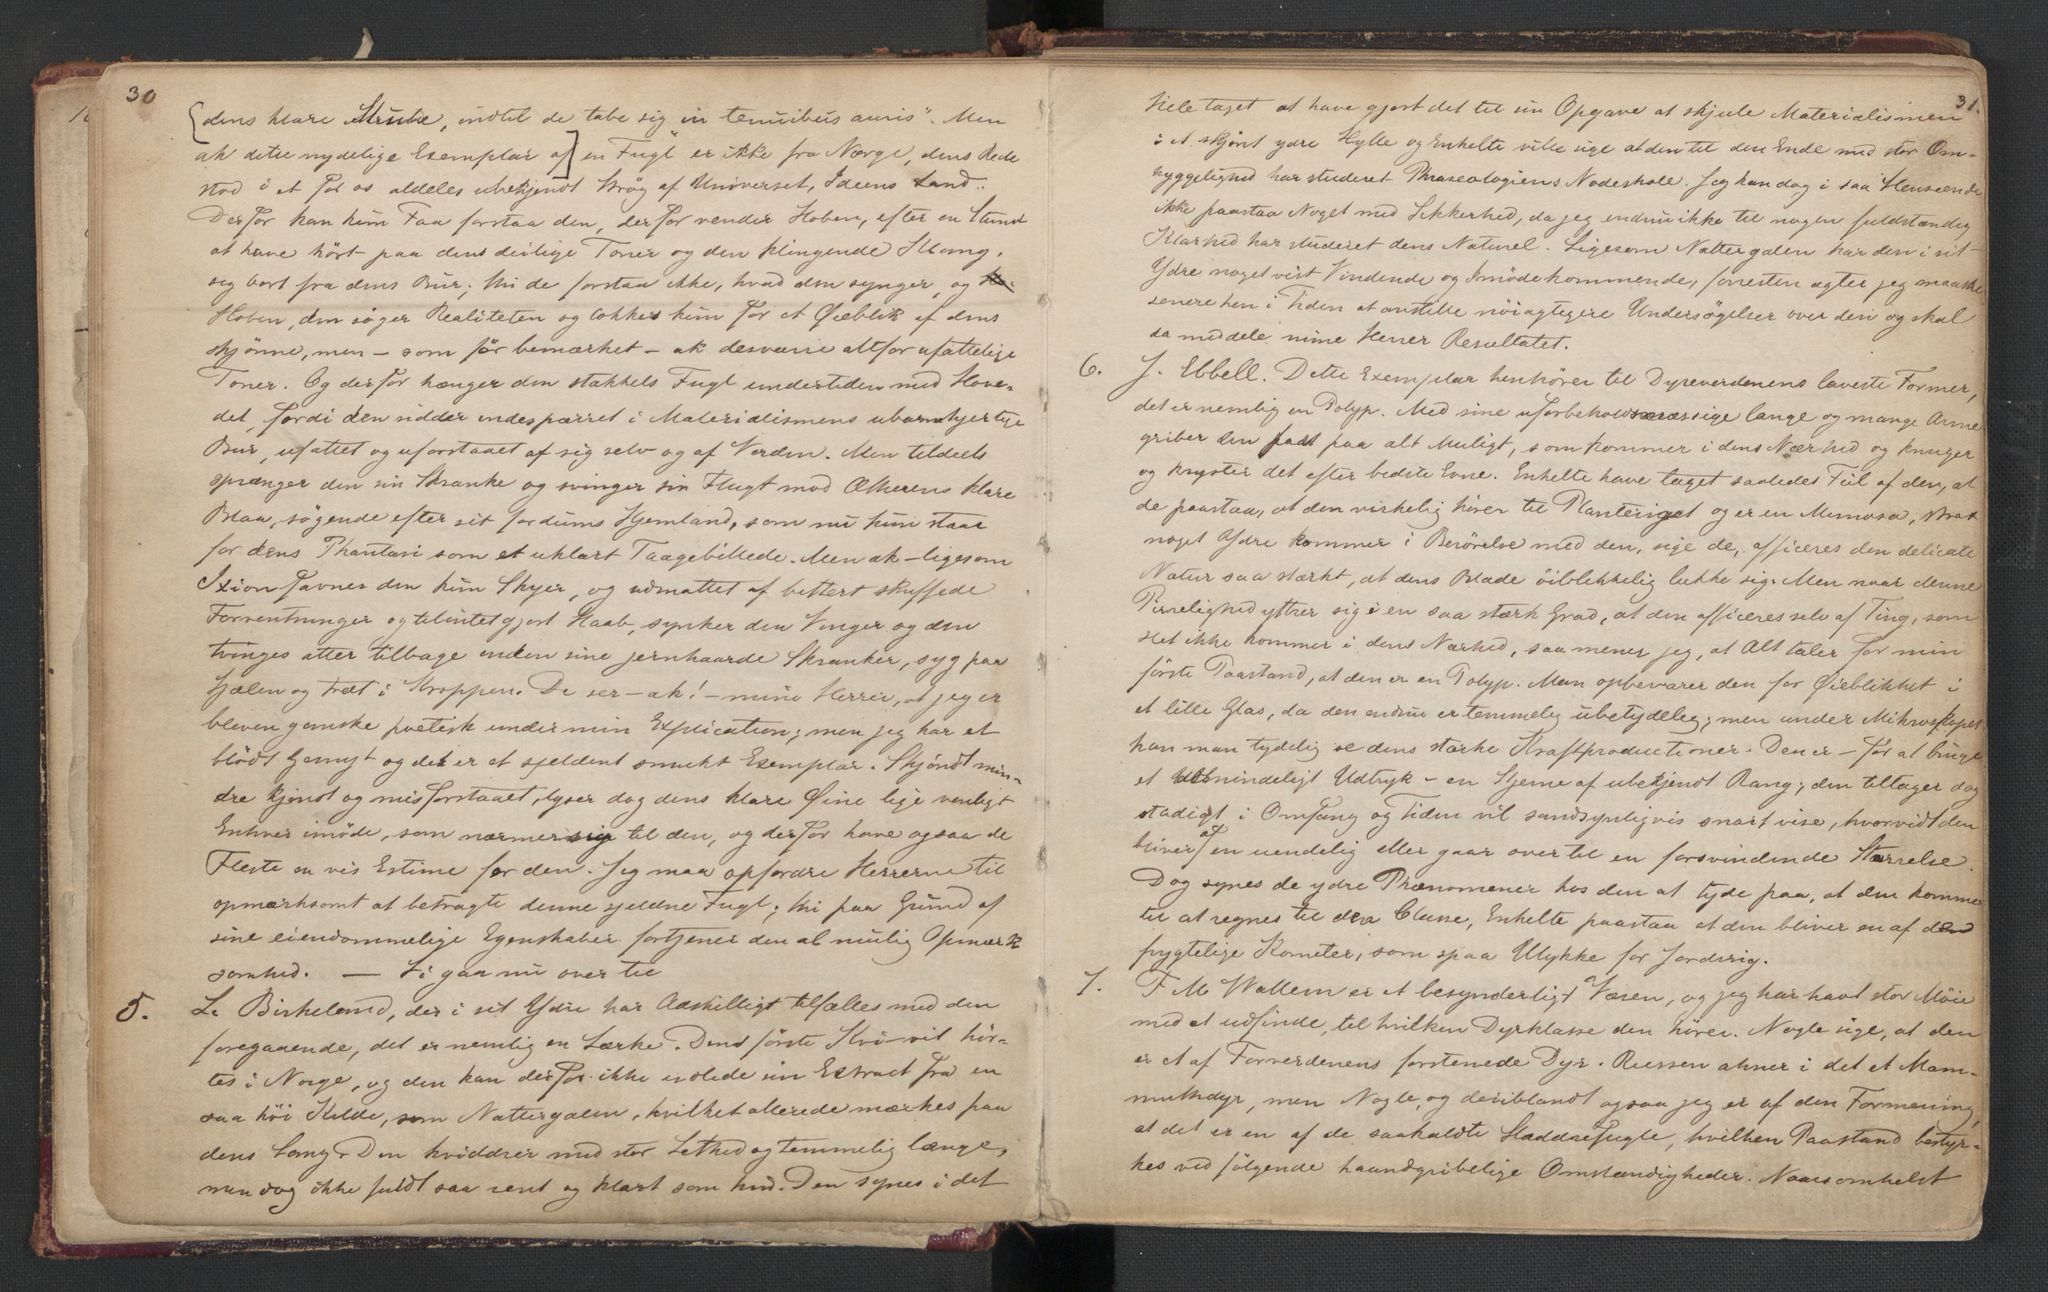 30
dens klare Strube, indtil de tabe sig in tenuibus auris". Men
ak dette nydelige Exemplar af en Fugl er ikke fra Norge, dens Rede
stod i et for os aldeles ubekjendt Strøg af Universet, Ideens Land.
Derfor kan kun Faa forstaa den, derfor vender Hoben, efter en Stund
at have hørt paa dens deilige Toner og den klingende Klang,
sig bort fra dens Bur; thi de forstaa ikke, hvad den synger, og
Hoben, den søger Realiteten og lokkes kun for et Øieblik af dens
skjønne, men – som før bemærket – ak desværre altfor ufattelige
Toner. Og derfor hænger den stakkels Fugl undertiden med Hove-
det, fordi den sidder indespærret i Materialismens ubarmhjertige
Bur, ufattet og uforstaaet af sig selv og af Verden. Men tildels
sprænger den sin Skranke og svinger sin Flugt mod Ætherens klare
Blaa, søgende efter sit fordums Hjemland, som nu kun staar
for dens Phantasi som et uklart Taagebillede. Men ak – ligesom
Ixion favner den kun Skyer, og udmattet af bittert skuffede
Forventninger og tilintetgjort Haab, synker den Vinger og den
tvinges atter tilbage inden sine jernhaarde Skranker, syg paa
Sjælen og træt i Kroppen. De ser – ak! – mine Herrer, at jeg er
bleven ganske poetisk under min Explication; men jeg har et
blødt Gemyt og det er et sjeldent smukt Exemplar. Skjøndt min-
dre kjendt og misforstaaet, lyser dog dens klare Øine lige venligt
Enhver imøde, som nærmer sig til den, og derfor have ogsaa de
Fleste en vis Estime for den. Jeg maa opfordre Herrerne til
opmærksomt at betragte denne sjeldne Fugl; thi paa Grund af
sine eiendommelige Egenskaber fortjener den al mulig Opmærk
somhed. — Vi gaa nu over til
5. L. Birkeland, der i sit Ydre har Adskilligt tilfælles med den
foregaaende, det er nemlig en Lærke. Dens første Kvi-vit hør-
tes i Norge, og den kan derfor ikke udlede sin Extract fra en
saa høi Kilde, som Nattergalen, hvilket allerede mærkes paa
dens Sang. Den kviddrer med stor Lethed og temmelig længe,
men dog ikke fuldt saa rent og klart som hin. Den synes i det
31.
Hele taget at have gjort det til sin Opgave at skjule Materialismen
i et skjønt ydre Hylle og Enkelte ville sige at den til den Ende med stor Om-
hyggelighed har studeret Phraseologiens Nodeskole. Jeg kan dog i saa Henseende
ikke paastaa Noget med Sikkerhed, da jeg endnu ikke til nogen fuldstændig
Klarhed har studeret dens Naturel. Ligesom Nattergalen har den i sit
Ydre noget vist Vindende og Imødekommende; forresten agter jeg maaske
senere hen i Tiden at anstille nøiagtigere Undersøgelser over den og skal
da meddele mine Herrer Resultatet.
6. J. Ebbell. Dette Exemplar henhører til Dyreverdenens laveste Former,
det er nemlig en Polyp. Med sine uforholdsmæssige lange og mange Arme
griber den fast paa alt Muligt, som kommer i dens Nærhed og knuger
og kryster det efter bedste Evne. Enkelte have taget saaledes Feil af den, at
de paastaa, at den virkelig hører til Planteriget og er en Mimosa, strax
noget Ydre kommer i Berørelse med den, sige de, afficeres den delicate
Natur saa stærkt, at dens Blade øiblikkelig lukke sig. Men naar denne
Pirrelighed yttrer sig i en saa stærk Grad, at den afficeres selv af Ting, som
slet ikke kommer i dens Nærhed, saa mener jeg, at Alt taler for min
første Paastand, at den er en Polyp. Man opbevarer den for Øieblikket i
et lille Glas, da den endnu er temmelig ubetydelig; men under Mikroskopet
kan man tydelig se dens stærke Kraftproductioner. Den er – for at bruge
et almindeligt Udtryk – en Stjerne af ubekjendt Rang; den tiltager dog
stadigt i Omfang og Tiden vil sandsynligvis snart vise, hvorvidt den
bliver af en uendelig eller gaar over til en forsvindende Størrelse.
Dog synes de ydre Phænomener hos den at tyde paa, at den kommer
til at regnes til den Classe, Enkelte paastaa at den bliver en af de
frygtelige Kometer, som spaa Ulykke for Jorderig.
7. F M Wallem er et besynderligt Væsen, og jeg har havt stor Møie
med at udfinde, til hvilken Dyrklasse den hører. Nogle sige, at den
er et af Forverdenens forstenede Dyr. Russen ahner i det et Mam-
muthdyr, men Nogle, og deriblandt ogsaa jeg er af den Formening,
at det er en af de saakaldte Sladdrefugle, hvilken Paastand bestyr-
kes ved følgende haandgribelige Omstændigheder. Naarsomhelst